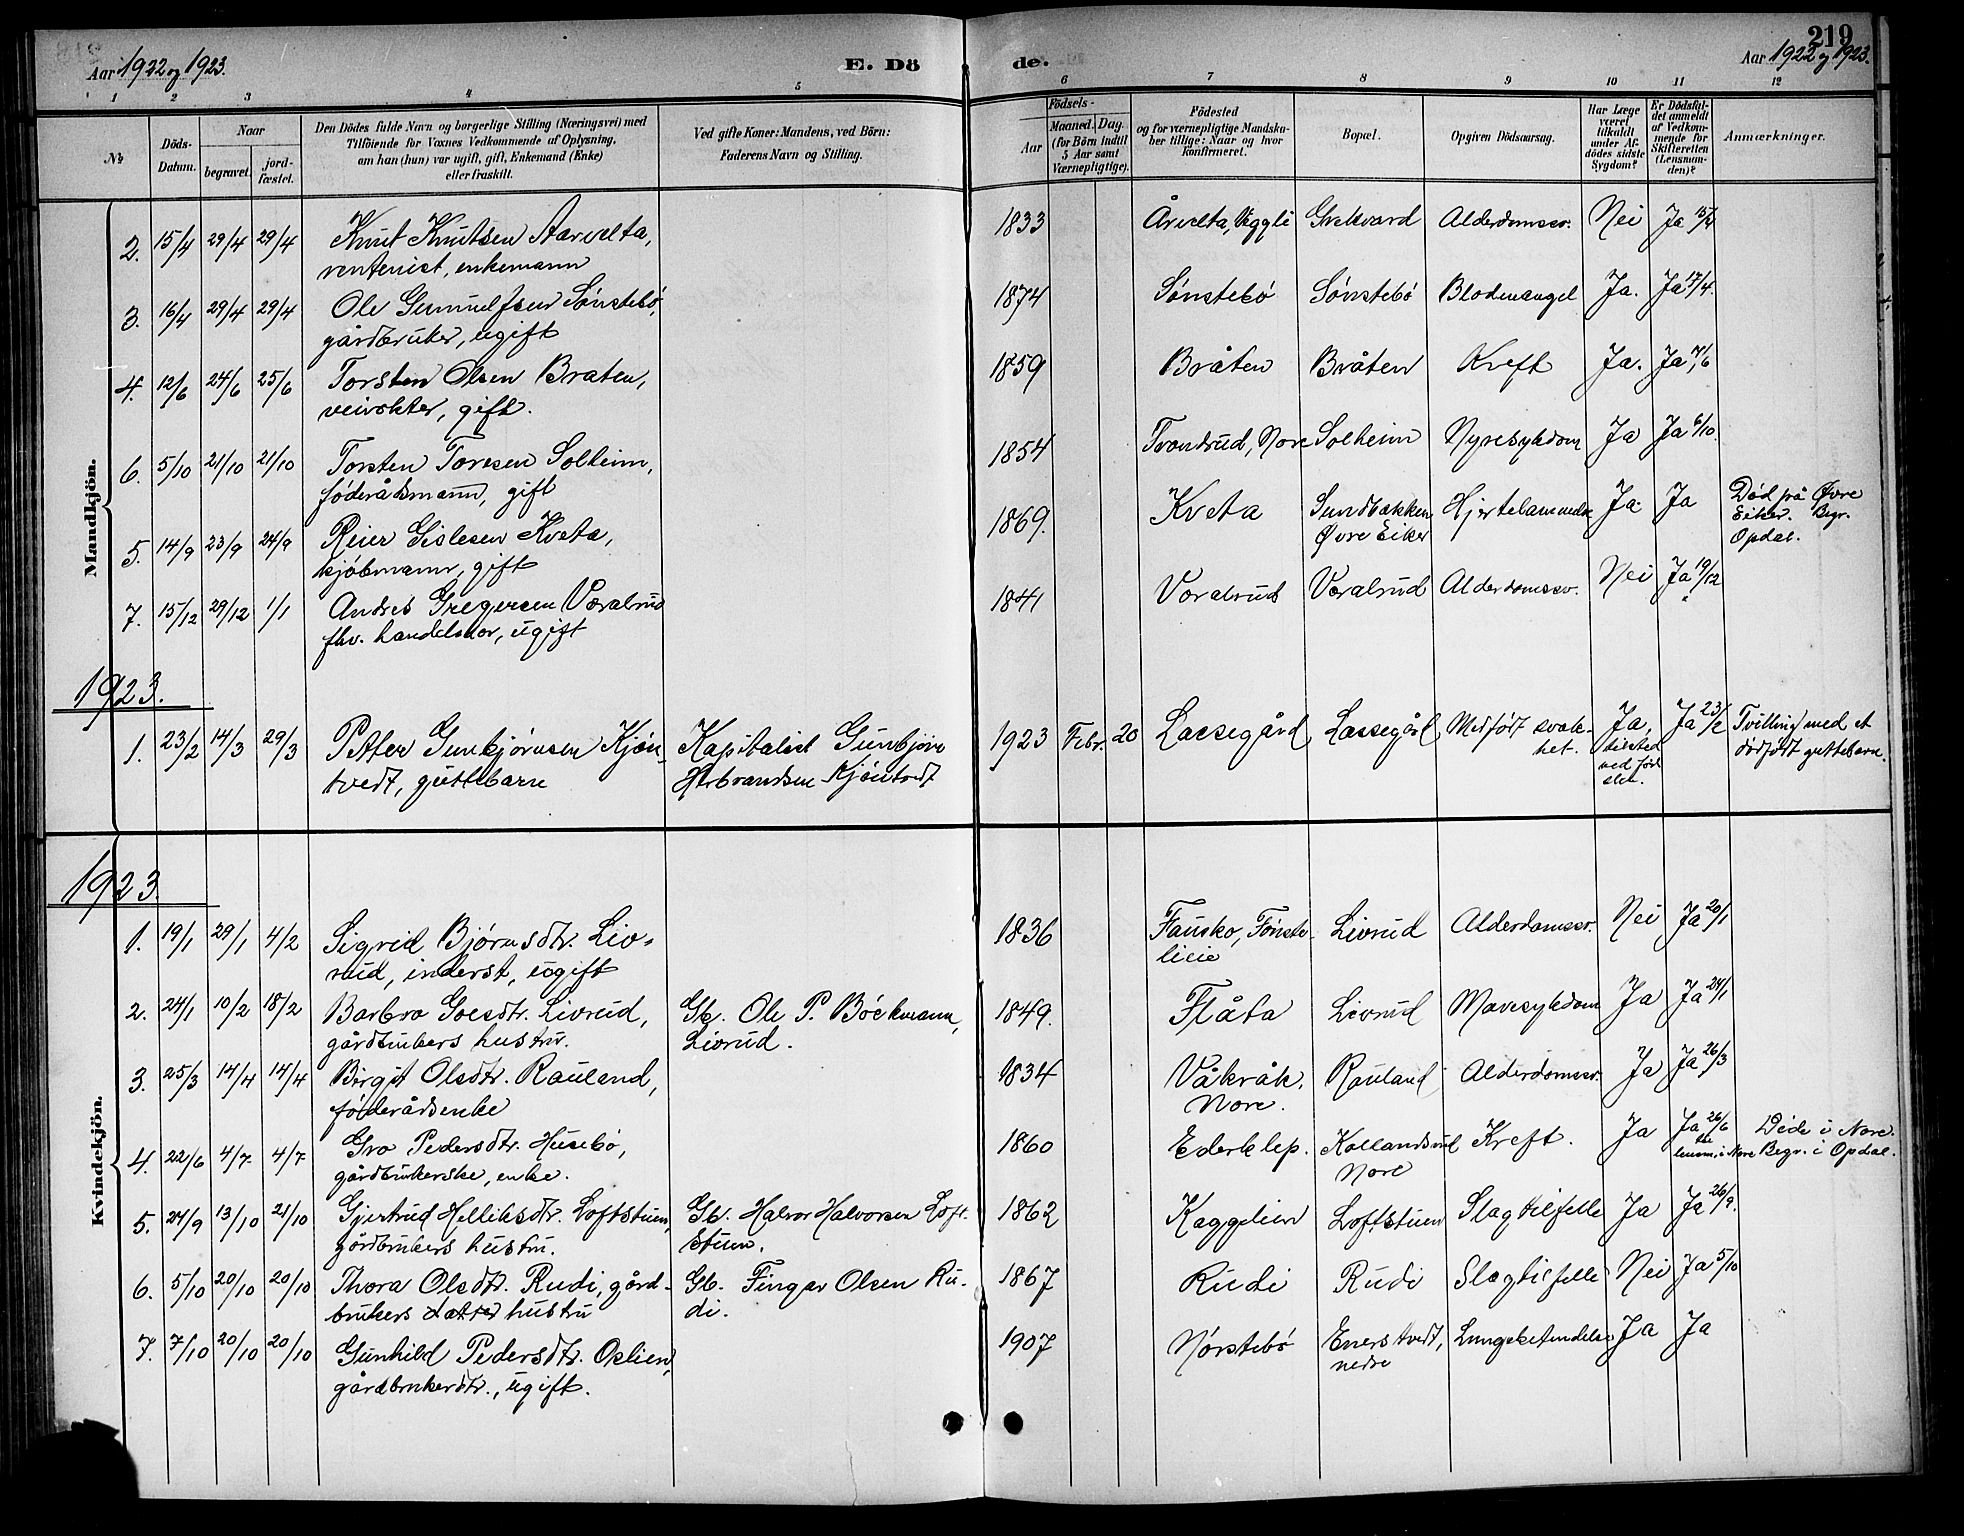 219
Aar 1922 og 1923.
E. Dö
de.
Aar 1922 og 1923.
1 2 3 4 5 6 7 8 9 10 11 12
No
Döds-Datum.
Naar
begravet.
jord-fæstet.
Den Dödes fulde Navn og borgerlige Stilling (Næringsvei) med
Tilföiende for Voxnes Vedkommende af Oplysning,
om han (hun) var ugift, gift, Enkemand (Enke)
eller fraskilt.
Ved gifte Koner: Mandens, ved Börn:
Faderens Navn og Stilling.
Födsels-
Aar
Maaned. Dag.
(for Börn indtil
5 Aar samt
Værnepligtige).
Födested
og for værnepligtige Mandska-
ber tillige: Naar og hvor
konfirmeret.
Bopæl.
Opgiven Dödsaarsag.
Har Læge
været
tilkaldt
under Af-
dödes sidste
Sygdom?
Er Dödsfal-
det anmeldt
af Vedkom-
mende for
Skifteretten
(Lensman-
den)?
Anmærkninger.
Mandkjön.
2. 15/4 29/4 29/4 Knut Knutsen Aarvelta, 1833 Årvelta, Veggli Alderdomssv. Nei Ja 15/4
rentenist, enkemann
3. 16/4 29/4 29/4 Ole Gunnulfsen Sönstebö, 1874 Sönstebö Sönstebö Blodmangel Ja. Ja 17/4.
gårdbruker, ugift
4. 12/6 24/6 25/6 Torsten Olsen Braten, 1859 Bråten Bråten Kreft Ja. Ja
veivokter, gift.
6. 5/10 21/10 21/10 Torsten Toresen Solheim, 1854 Trondrud, Nore Solheim Nyresykdom Ja Ja 6/10.
föderådsmann, gift
5. 14/9 23/9 24/9 Reier Gislesen Kveta, 1869. Kveta Sundbakken Øvre Eiker Hjertelammelse Ja Ja Död på Øvre
Eiker. Begr.
Opdal.
kjöbmann, gift
7. 15/12 29/12 1/1 Andres Gregersen Voralrud 1841 Voralrud Voralrud Alderdomssv. Nei Ja 19/12
fhv. handelskar, ugift
1923.
1. 23/2 14/3 29/3 Petter Gunbjörnsen Kjön- Kapitalist Gunbjörn 1923 Febr. 20 Lassegård Lassegård Medfödt svak- Ja, Ja 23/2 Tvilling med et
tvedt, guttebarn Herbrandsen Kjöntvedt het. tilsted dödfödt guttebarn.
ved föd
slen.
1923.
Kvindekjön.
1. 19/1 29/1 4/2 Sigrid Björnsdtr. Liv- 1836 Fausko, Livrud Alderdomssv. Nei Ja 20/1
rud, inderst, ugift
2. 24/1 10/2 18/2 Barbro Goesdtr. Livrud, Gb. Ole P. Böckmann, 1849. Flåta Livrud Mavesykdom Ja Ja 24/1
gårdbrukers hustru. Livrud.
3. 25/3 14/4 14/4 Birgit Olsdtr. Rauland, 1834 Våkråk, Rauland Alderdomssv. Ja Ja 26/3
föderådsenke Nore.
4. 22/6 4/7 4/7 Gro Pedersdtr. Husebö, 1860 Ederklep. Kollandsrud Kreft. Ja Ja 26/6 Döde i Nore.
gårdbrukerske, enke. Nore lensm. i Nore Begr. i Opdal.
5. 24/9 13/10 21/10 Gjertrud Helliksdtr. Loftstuen, Gb. Halvor Halvorsen Loft- 1862 Kaggelien Loftstuen Slagtilfelle Ja Ja 26/9.
gårdbrukers hustru. stuen.
6. 5/10 20/10 20/10 Thora Olsdtr. Rudi, gård- Gb. Fingar Olsen Ru- 1867 Rudi Rudi Slagtilfelle Nei Ja 5/10
brukers datter hustru di.
7. 7/10 20/10 20/10 Gunhild Pedersdtr. Oslien, 1907 Nörstebö Enerstvedt, Lungebetendelse Ja Ja
gårdbrukerdtr., ugift. nedre